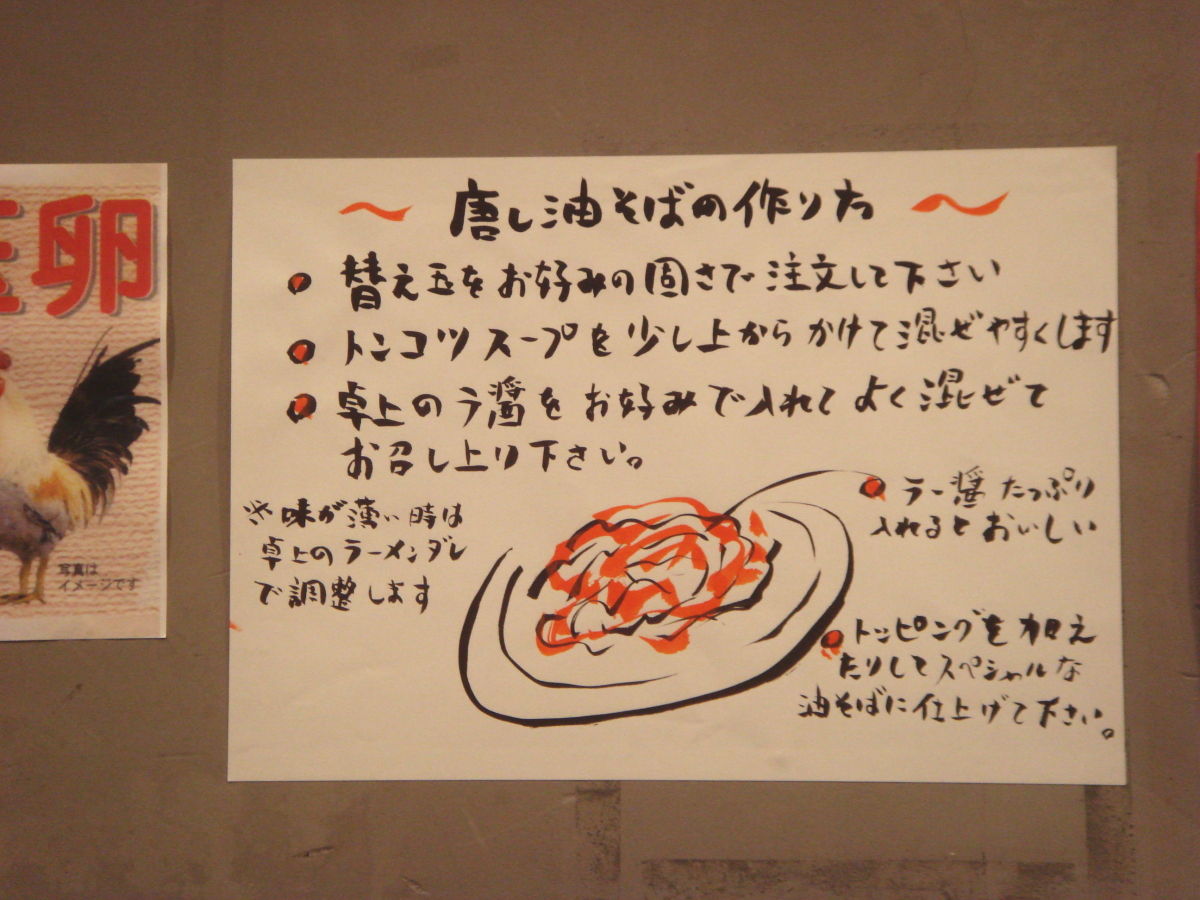 玉卵
写真は
イメージです
〜唐し油そばの作り方〜
替え玉をお好みの固さで注文して下さい
トンコツスープを少し上からかけて混ぜやすくします
卓上のラ醤をお好みで入れてよく混ぜて
お召し上り下さい。
※味が薄い時は
卓上のラーメンダレ
で調整します
ラー醤たっぷり
入れるとおいしい
トッピングを加え
たりしてスペシャルな
油そばに仕上げて下さい。